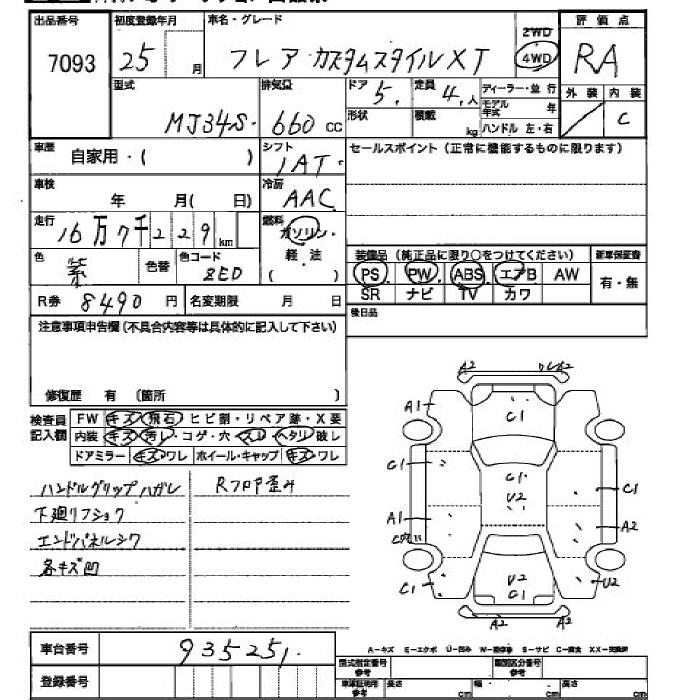 出品番号 初度登録年月 車名・グレード 評価点
7093 25 月 フレア カスタムスタイル XT 2WD 4WD RA
型式 排気量 ドア 5. 定員 4.人 ディーラー・並行 外装 内装
MJ34S. 660 cc 形状 積載 kg モデル年式 年 C
ハンドル 左・右
車歴 自家用・( ) シフト IAT. セールスポイント(正常に機能するものに限ります)
車検 年 月( 日) 冷房 AAC
走行 16万7千229km 燃料 ガソリン.
色 紫 色替 色コード ZED 軽・油 ( )
装備品(純正品に限り○をつけてください) 新車保証書
PS PW ABS エアB AW 有・無
SR ナビ TV カワ
R券 8490 円 名変期限 月 日
後日品
注意事項申告欄(不具合内容等は具体的に記入して下さい)
修復歴 有 (箇所 )
検査員記入欄 FW キズ・飛石・ヒビ割・リペア跡・X要
内装 キズ・汚レ・コゲ・穴・スレ・ヘタリ・破レ
ドアミラー キズ・ワレ ホイール・キャップ キズ・ワレ
ハンドルグリップハガレ RフロアP歪み
下廻リフショク
エンドパネルシワ
各キズ凹
A2 A2
A1 C1
C1 C1 U2 C1
A1 A2
C1 U2 C1 U2
A2 A2
車台番号 935251.
A-キズ E-エクボ U-凹み W-補修跡 S-サビ C-腐食 XX-交換済
登録番号 型式指定番号 参考 類別区分番号 参考
車庫証明用 参考 長さ cm 幅 cm 高さ cm